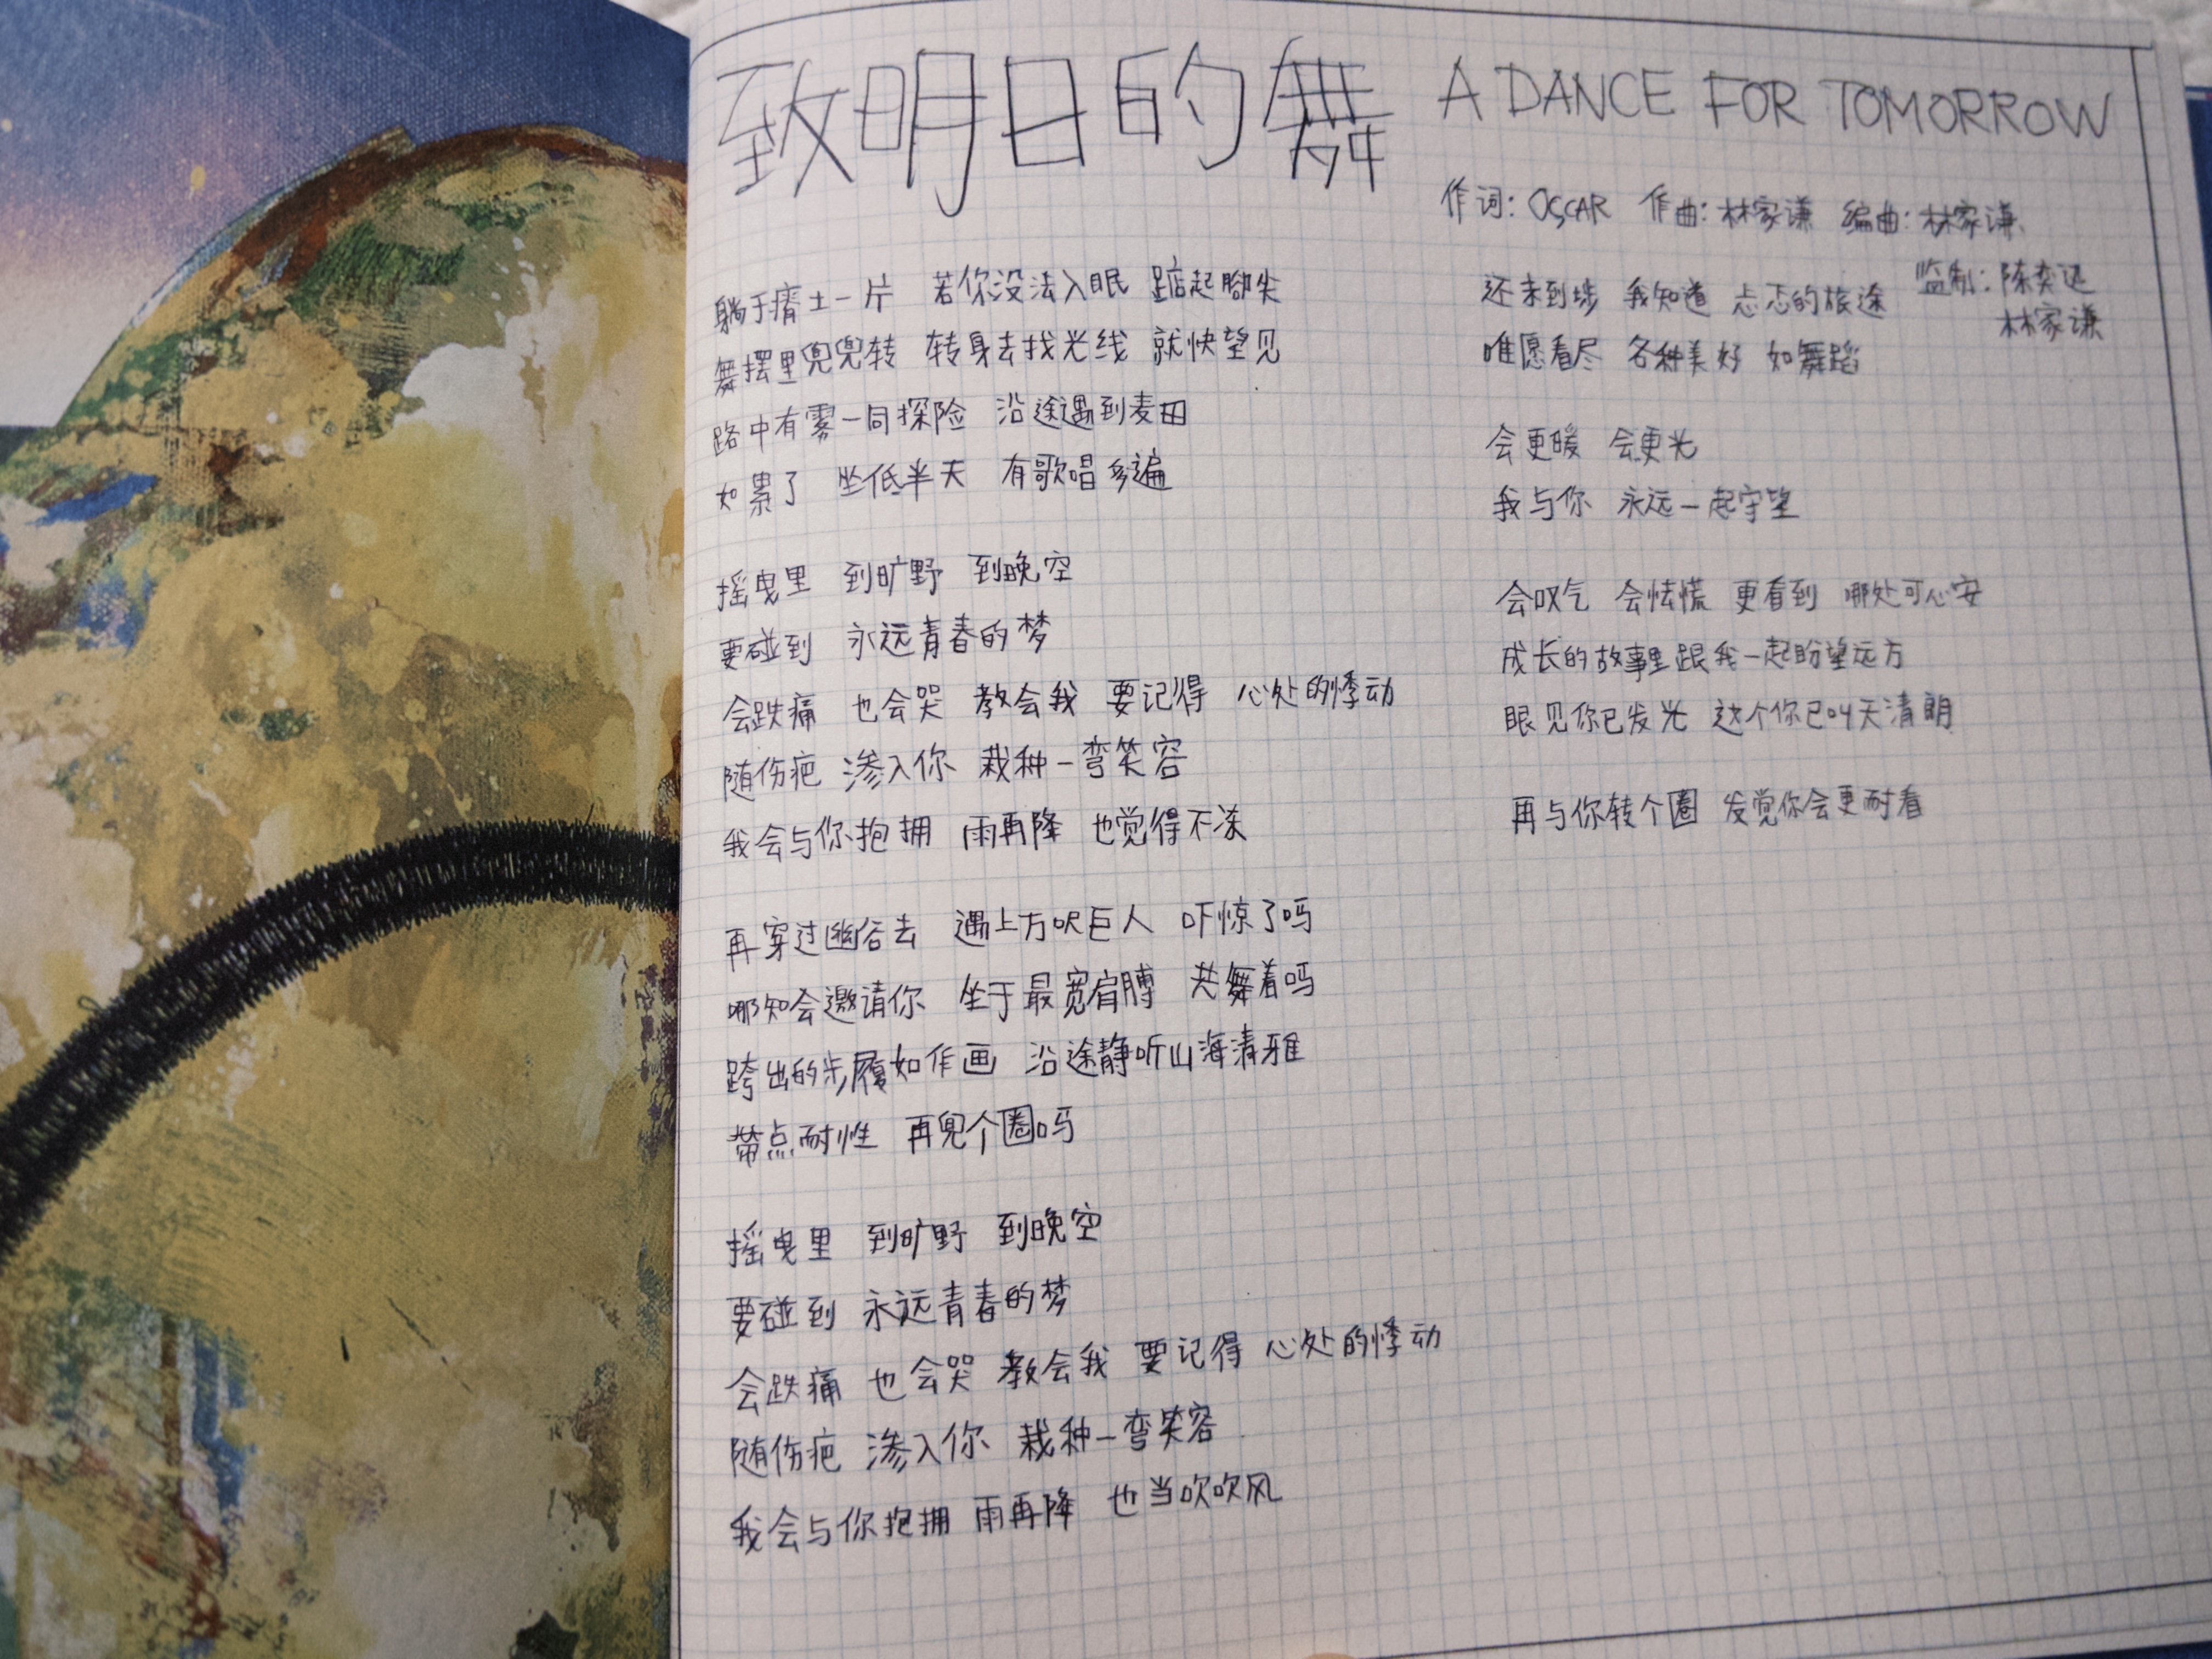 致明日的舞 A DANCE FOR TOMORROW
作词: OSCAR 作曲: 林家谦 编曲: 林家谦
监制: 陈奕迅
林家谦
躺于瘠土一片 若你没法入眠 踮起脚尖
舞摆里兜兜转 转身去找光线 就快望见
路中有雾一同探险 沿途遇到麦田
如累了 坐低半天 有歌唱多遍
摇曳里 到旷野 到晚空
要碰到 永远青春的梦
会跌痛 也会哭 教会我 要记得 心处的悸动
随伤疤 渗入你 栽种一弯笑容
我会与你抱拥 雨再降 也觉得不冻
再穿过幽谷去 遇上万呎巨人 吓惊了吗
哪知会邀请你 坐于最宽肩膊 共舞着吗
跨出的步履如作画 沿途静听山海清雅
带点耐性 再兜个圈吗
摇曳里 到旷野 到晚空
要碰到 永远青春的梦
会跌痛 也会哭 教会我 要记得 心处的悸动
随伤疤 渗入你 栽种一弯笑容
我会与你抱拥 雨再降 也当吹吹风
还未到埗 我知道 忐忑的旅途
唯愿看尽 各种美好 如舞蹈
会更暖 会更光
我与你 永远一起守望
会叹气 会怯慌 更看到 哪处可心安
成长的故事里跟我一起盼望远方
眼见你已发光 这个你已叫天清朗
再与你转个圈 发觉你会更耐看